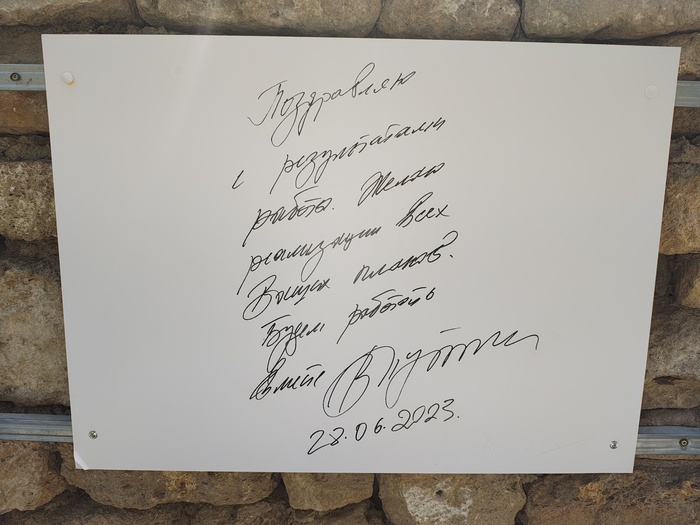 Поздравляю
с результатами
работы. Желаю
реализации всех
Ваших планов.
Будем работать
вместе В Путин
28.06.2023.